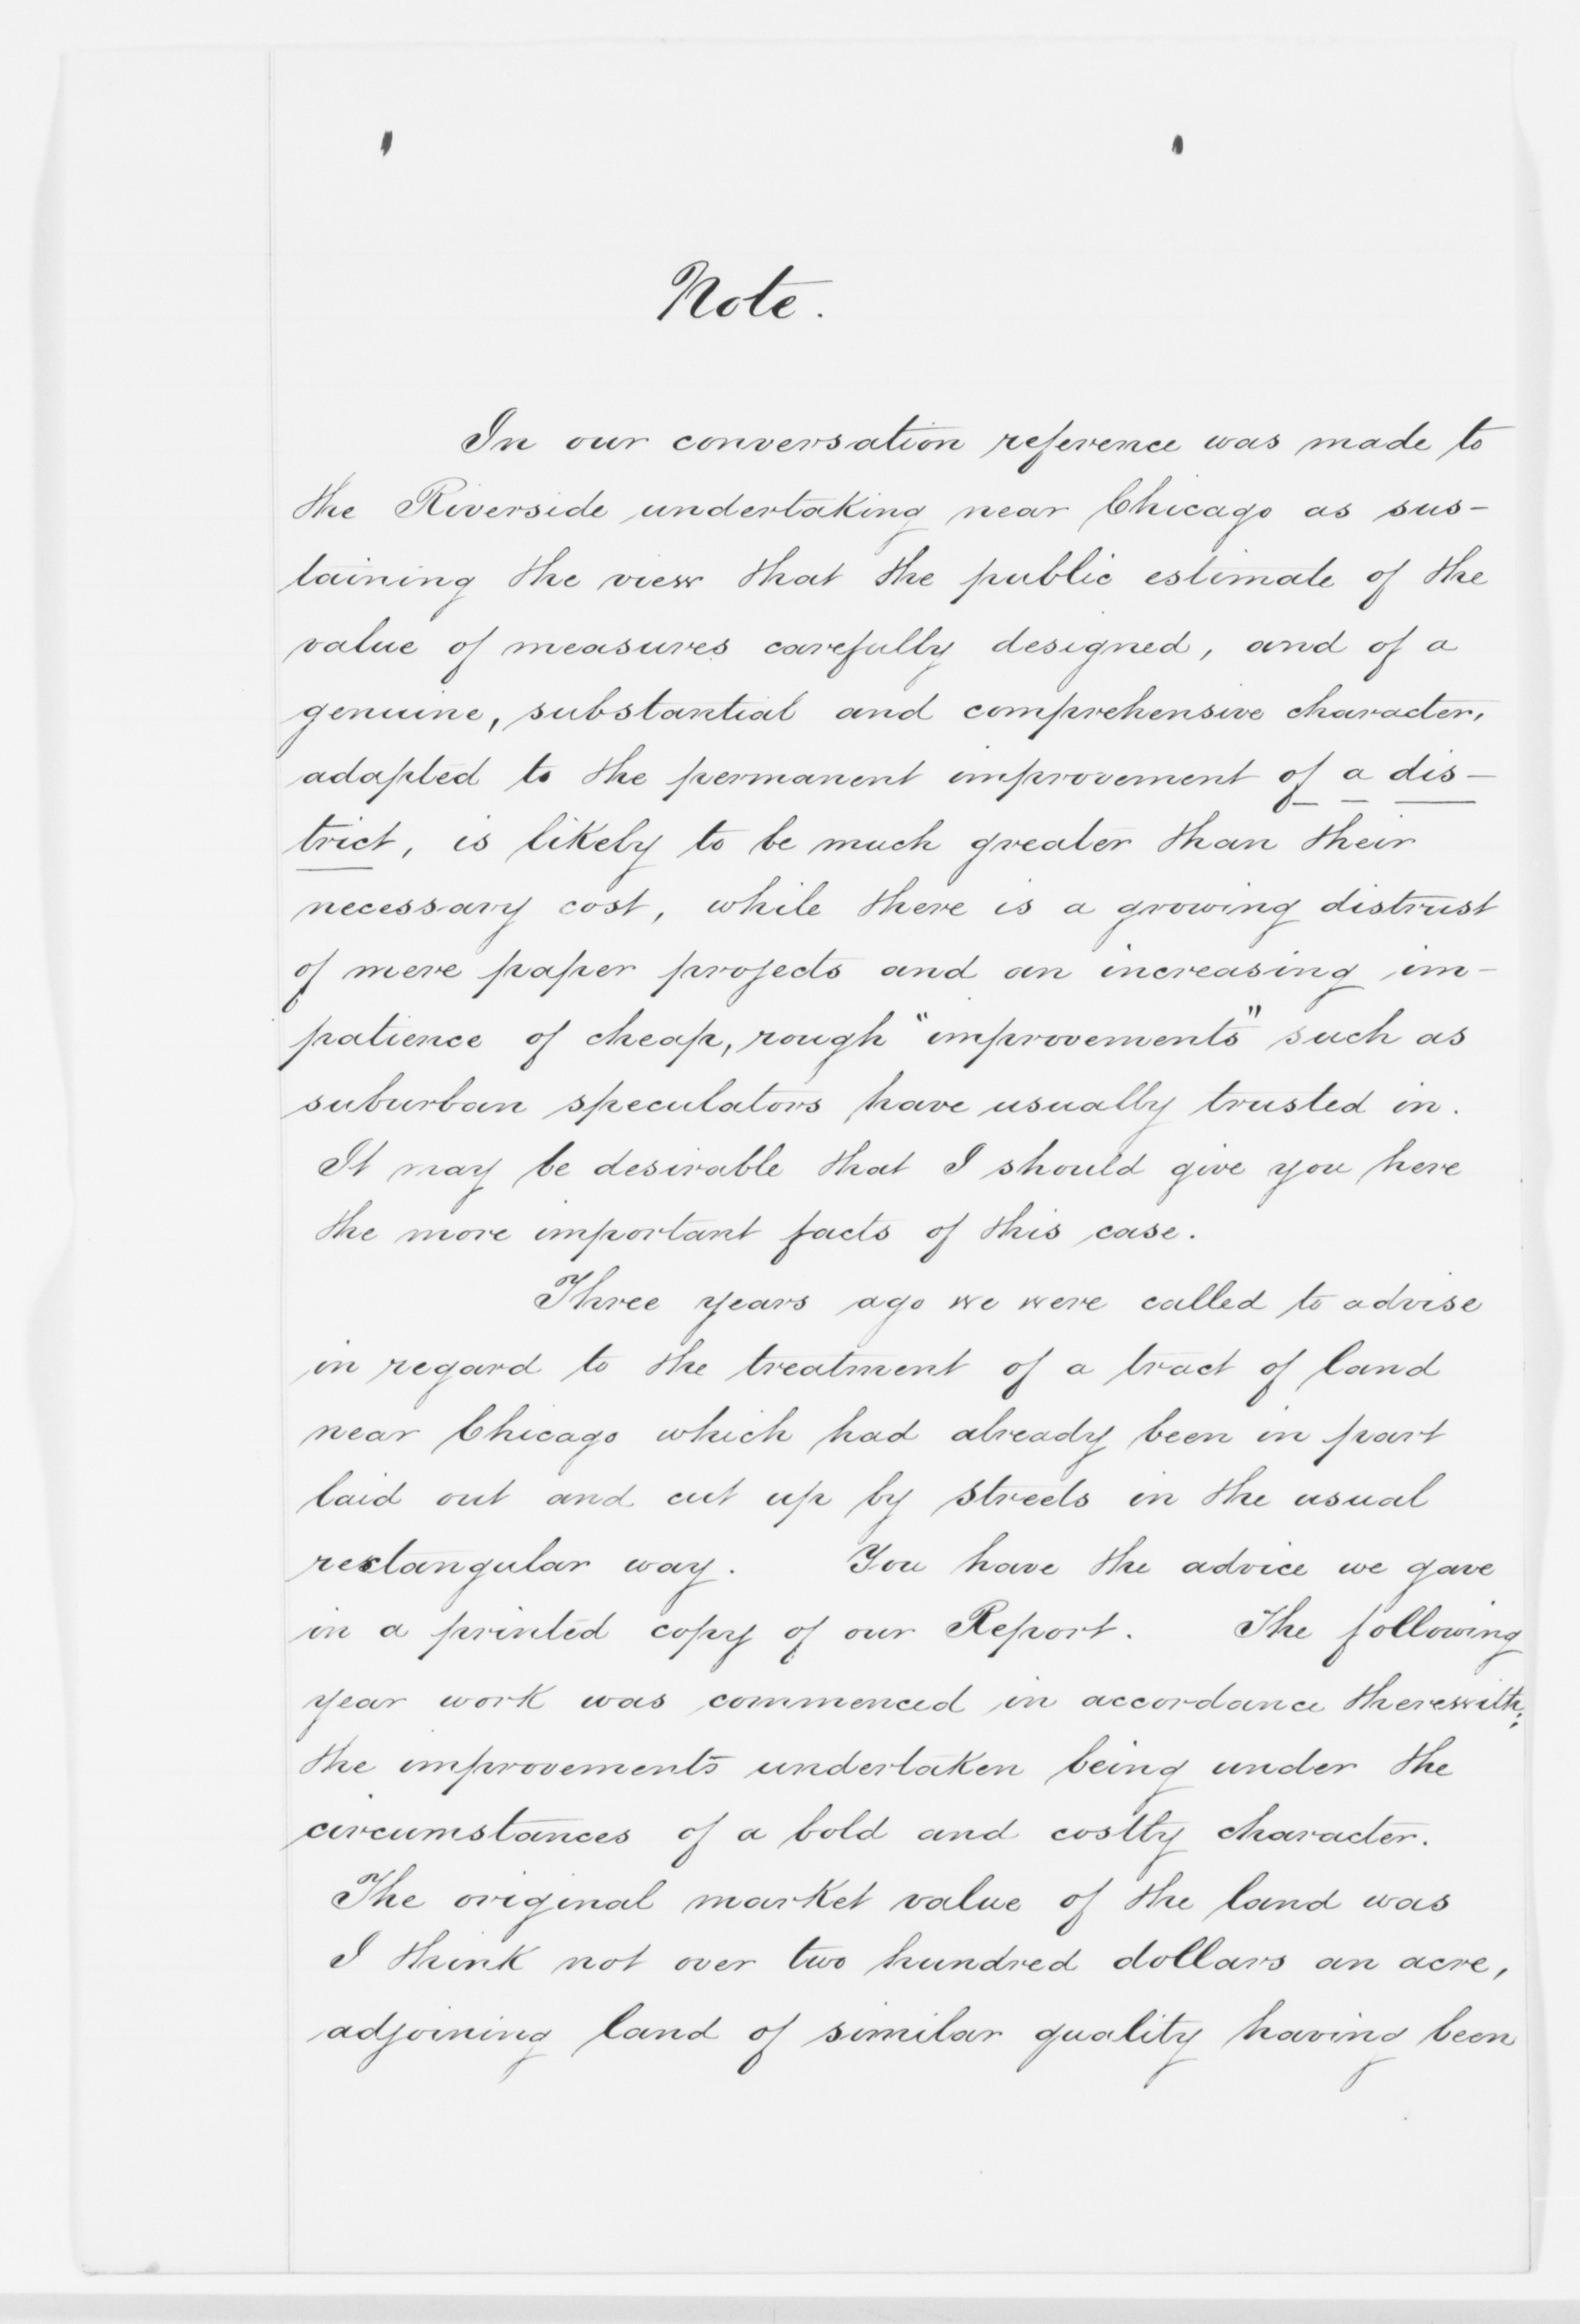 Note.
In our conversation reference was made to
the Riverside undertaking near Chicago as sus-
taining the view that the public estimate of the
value of measures carefully designed, and of a
genuine, substantial and comprehensive character,
adapted to the permanent improvement of a dis-
trict, is likely to be much greater than their
necessary cost, while there is a growing distrust
of mere paper projects and an increasing im-
patience of cheap, rough "improvements" such as
suburban speculators have usually trusted in.
It may be desirable that I should give you here
the more important facts of this case.
Three years ago we were called to advise
in regard to the treatment of a tract of land
near Chicago which had already been in part
laid out and cut up by streets in the usual
rectangular way. You have the advice we gave
in a printed copy of our Report. The following
year work was commenced in accordance therewith;
the improvements undertaken being under the
circumstances of a bold and costly character.
The original market value of the land was
I think not over two hundred dollars an acre,
adjoining land of similar quality having been